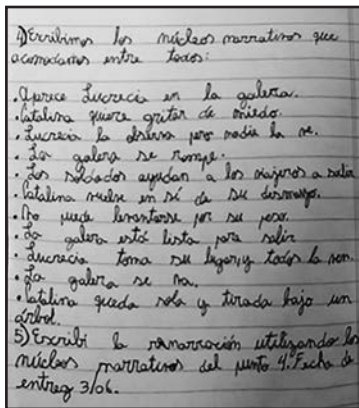 4) Escribimos los núcleos narrativos que
acomodamos entre todos:
. Aprece Lucrecia en la galera.
. Catalina quere gritar de miedo.
. Lucrecia la observa pero nadie la ve.
. La galera se rompe.
. Los soldados ayudan a los viajeros a salir
. Catalina vuelve en sí de su desmayo.
. No puede levantarse por su peso.
. La galera está lista para salir
. Lucrecia toma su lugar y todos la ven.
. La galera se va.
. Catalina queda sola y tirada bajo un
árbol.
5) Escribí la renarración utilizando los
núcleos narrativos del punto 4. Fecha de
entreg 3/06.